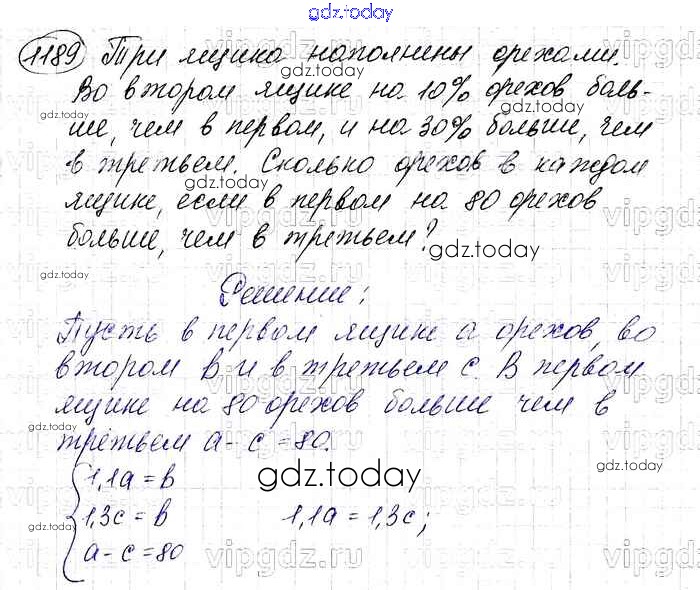 gdz.today
1189 Три ящика наполнены орехами.
gdz.today
Во втором ящике на 10% орехов боль-
ше, чем в первом, и на 30% больше, чем
gdz.today
в третьем. Сколько орехов в каждом
gdz.today
ящике, если в первом на 80 орехов
больше, чем в третьем?
gdz.today
gdz.today
Решение:
Пусть в первом ящике a орехов, во
gdz.today
втором в и в третьем c. В первом
ящике на 80 орехов больше чем в
gdz.today
третьем a - c = 80.
1,1a = в
gdz.today
1,3c = в 1,1a = 1,3c;
gdz.today
gdz.today
a - c = 80
vipgdz.ru